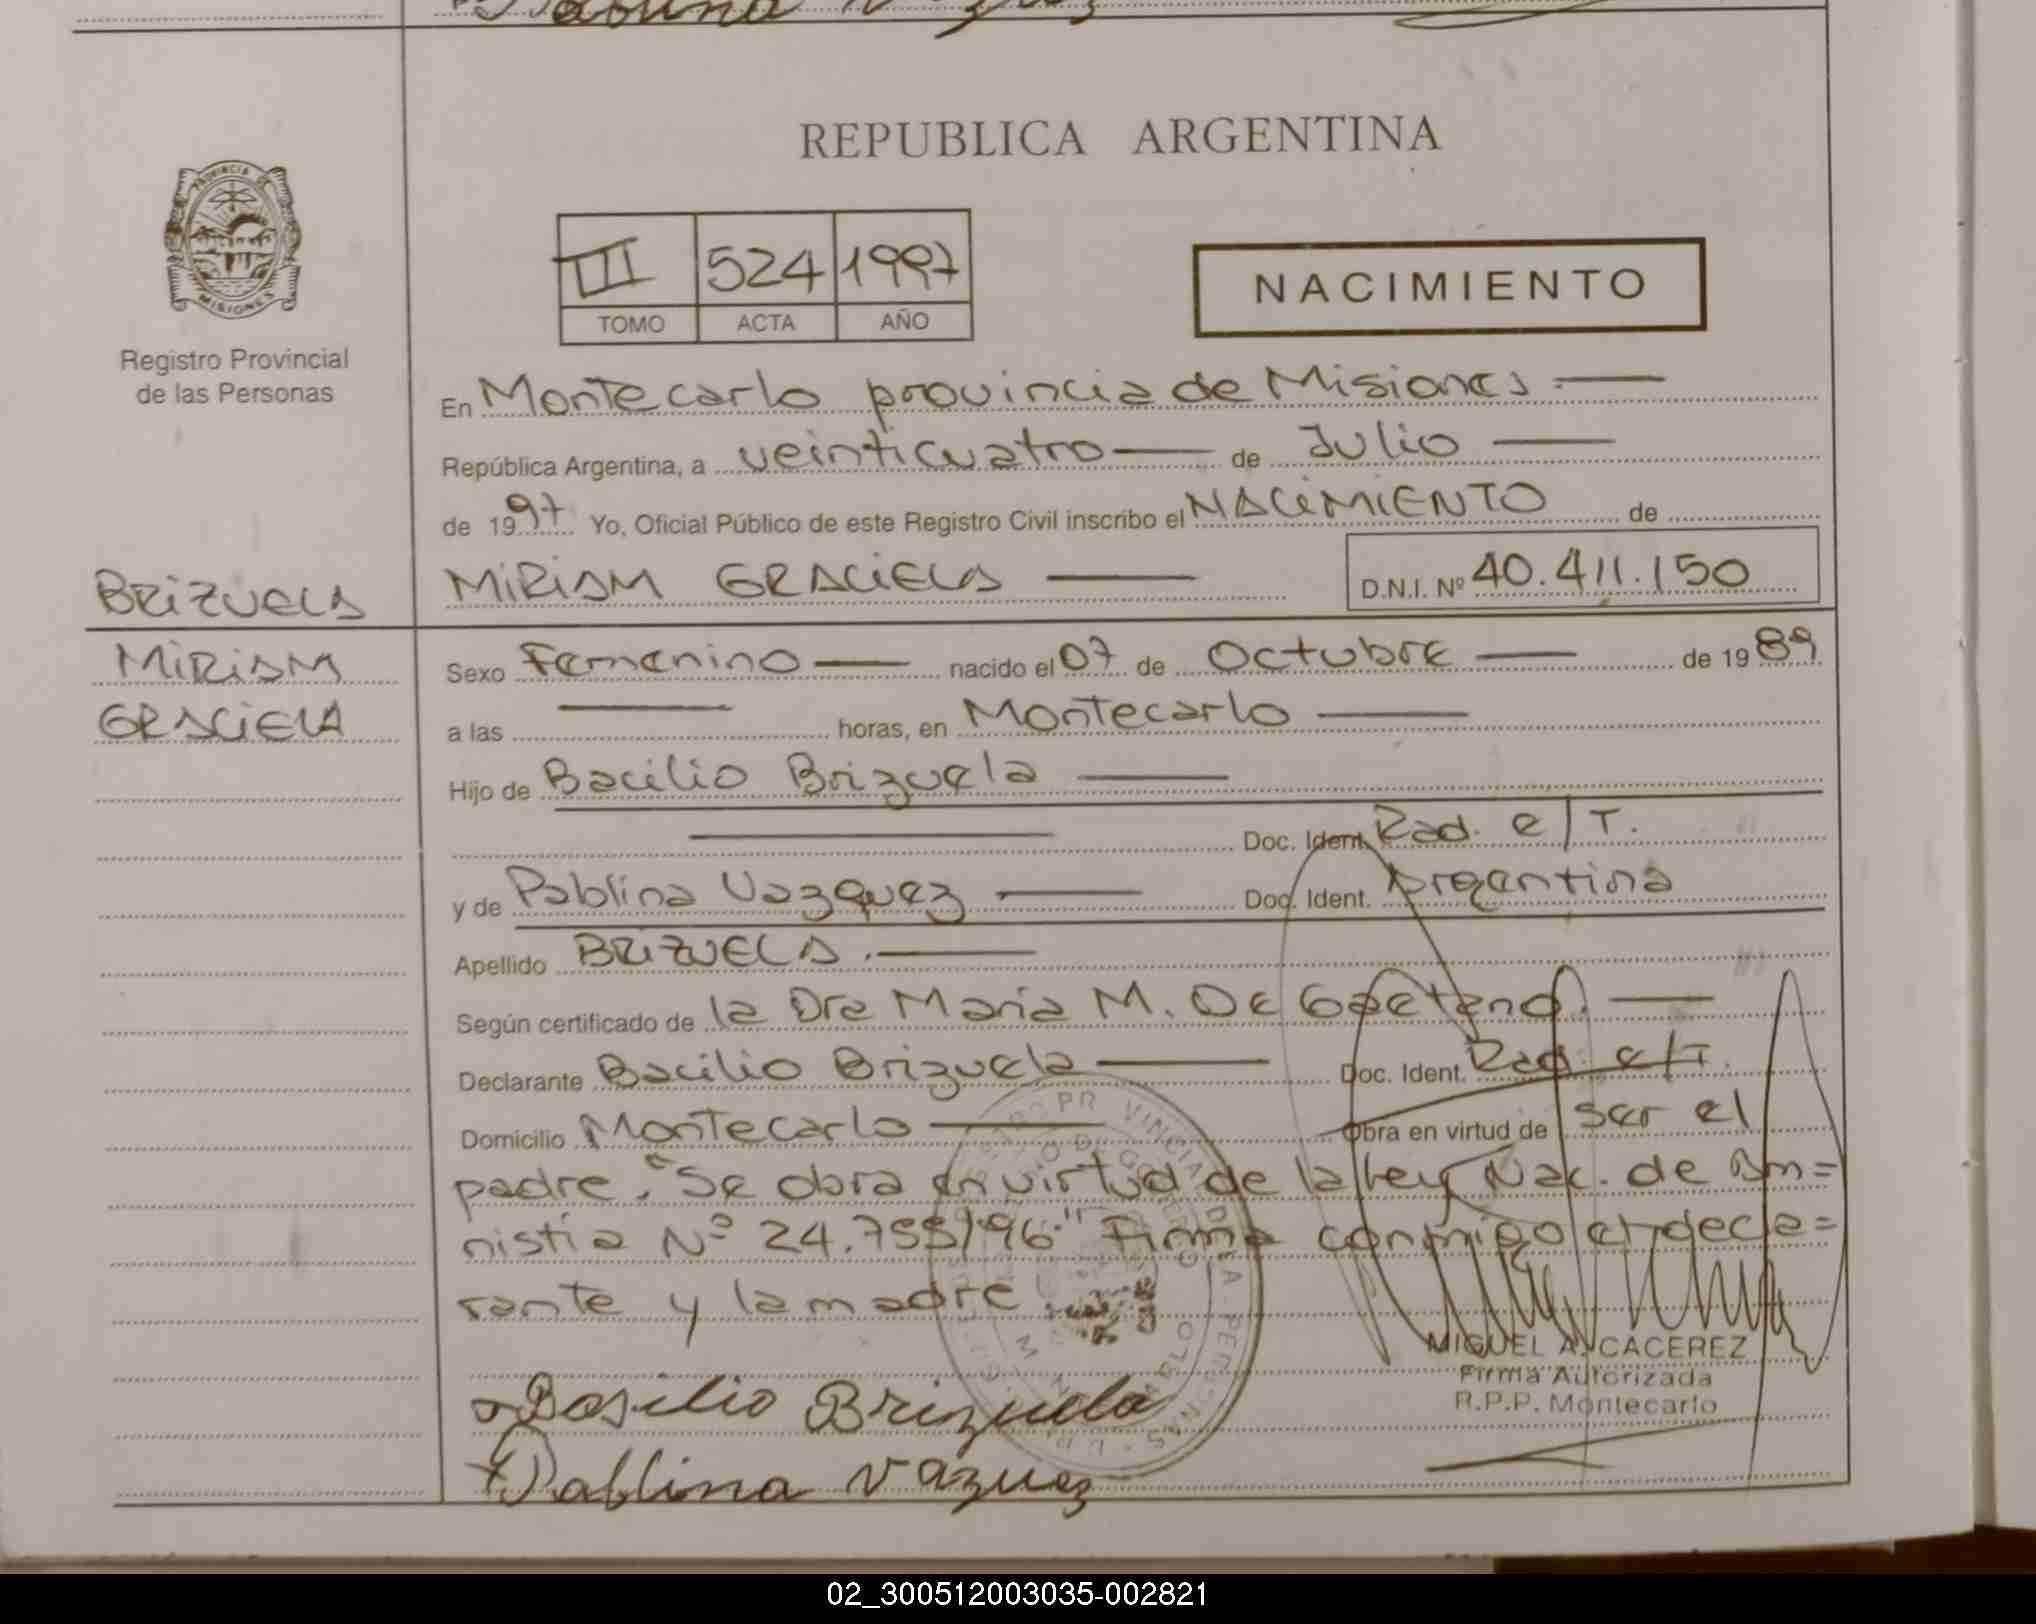 REPUBLICA ARGENTINA
PROVINCIA DE
MISIONES
Registro Provincial
de las Personas
III 524 1997
TOMO ACTA AÑO
NACIMIENTO
En Montecarlo provincia de Misiones.
República Argentina, a veinticuatro de Julio
de 1997 Yo, Oficial Público de este Registro Civil inscribo el NACIMIENTO de
BRIZUELA
MIRIAM GRACIELA D.N.I. Nº 40.411.150
MIRIAM
GRACIELA
Sexo Femenino nacido el 07 de Octubre de 1989
a las horas, en Montecarlo
Hijo de Bacilio Brizuela
Doc. Ident. Rad. e/T.
y de Pablina Vazquez Doc. Ident. Argentina
Apellido BRIZUELA.
Según certificado de la Dra Maria M. De Gaetano.
Declarante Bacilio Brizuela Doc. Ident. Rad. e/T.
Domicilio Montecarlo Obra en virtud de ser el
padre. "Se obra en virtud de la Ley Nac. de Am=
nistia Nº 24.755/96." Firma conmigo el decla=
rante y la madre
MIGUEL A. CACEREZ
Firma Autorizada
R.P.P. Montecarlo
Basilio Brizuela
Pablina Vazquez
02_300512003035-002821